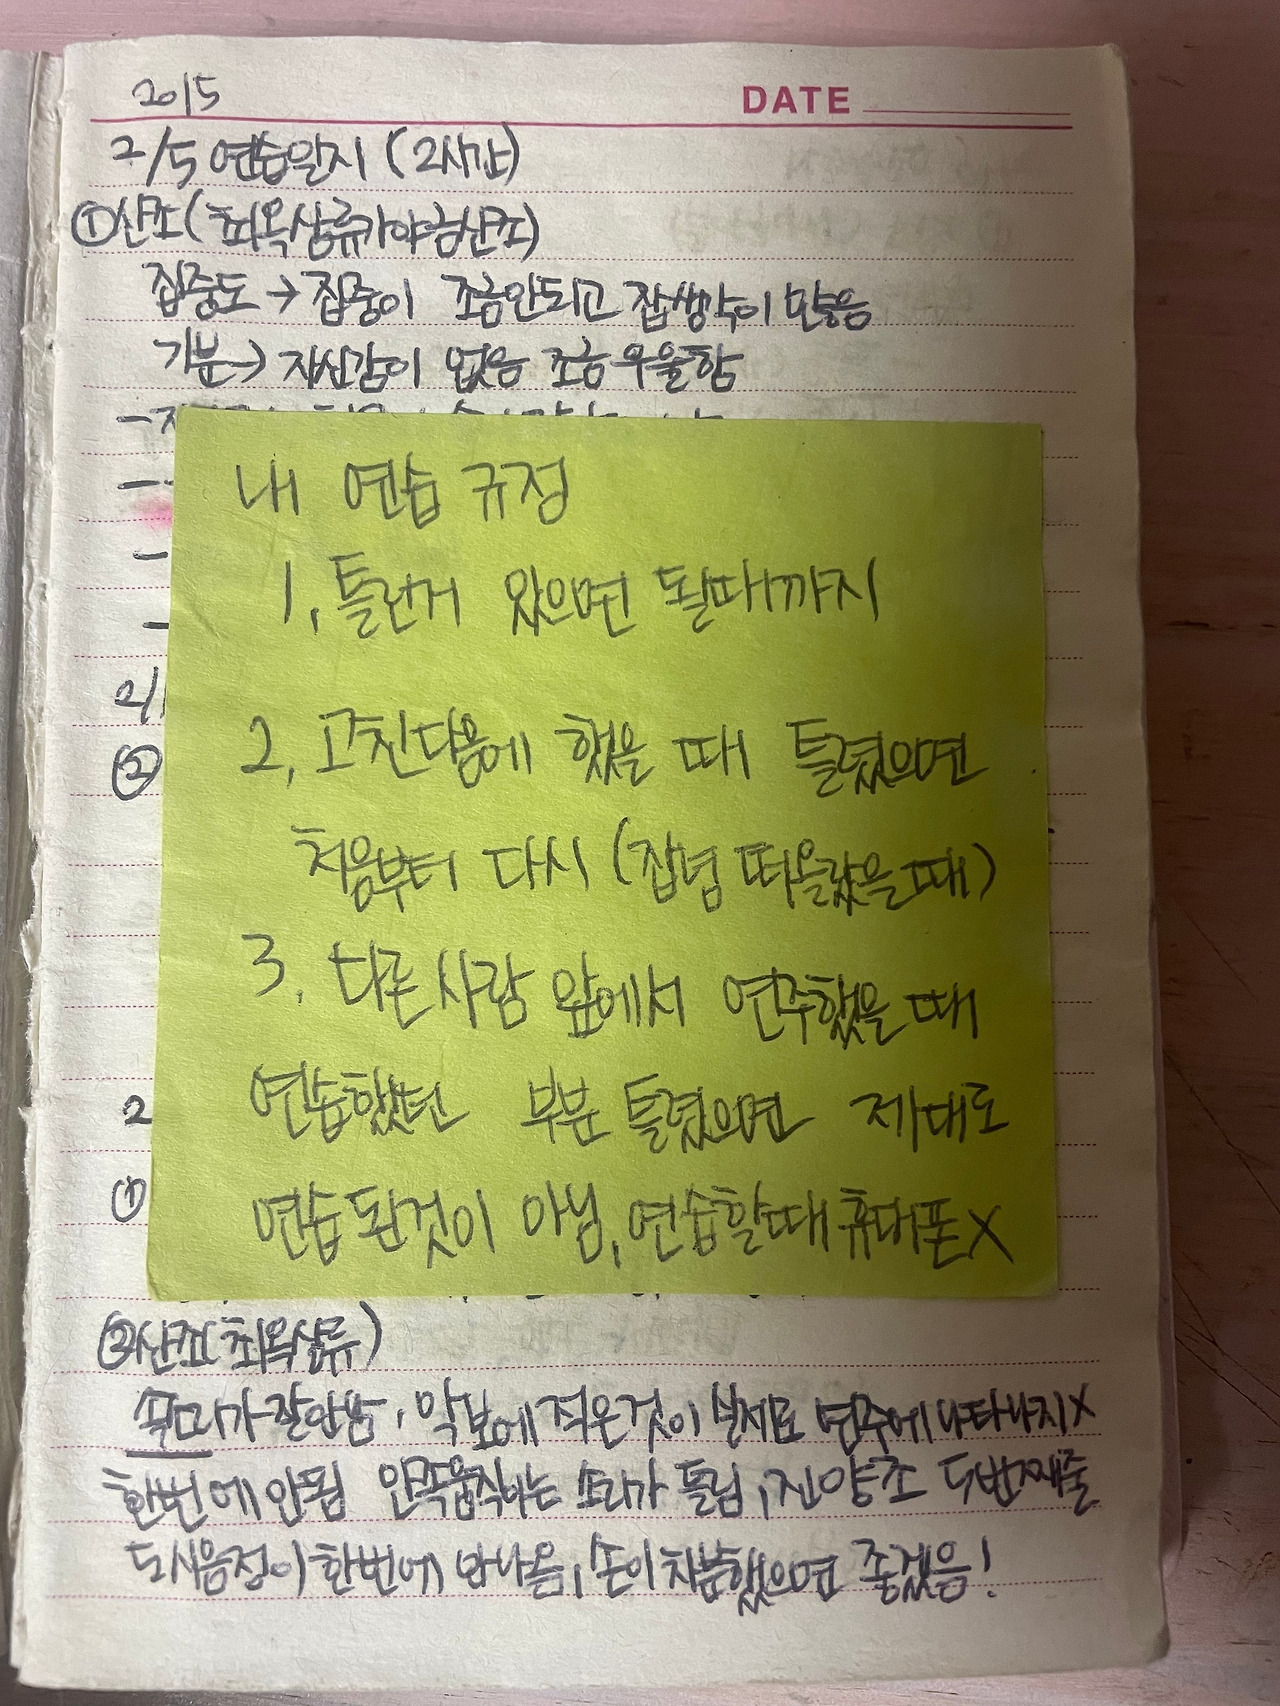 2015
DATE
2/5 연습일지 (2시간)
①산조(최옥삼류가야금산조)
집중도 → 집중이 조금안되고 잡생각이 많음
기분→ 자신감이 없음 조금 우울함
내 연습 규정
1. 틀린게 있으면 될때까지
2. 고친다음에 했을 때 틀렸으면
처음부터 다시 (잡념 떠올랐을때)
3. 다른사람 앞에서 연주했을 때
연습했던 부분 틀렸으면 제대로
연습된것이 아님, 연습할때 휴대폰X
2/
②
2
①
②산조(최옥삼류)
가 잘안남, 악보에 적은것이 실제로 연주에 나타나지X
한번에 안됨 왼쪽움직이는 소리가 틀림, 진양조 두번째줄
도시음정이 한번에 안나옴, 손이 차분했으면 좋겠음!